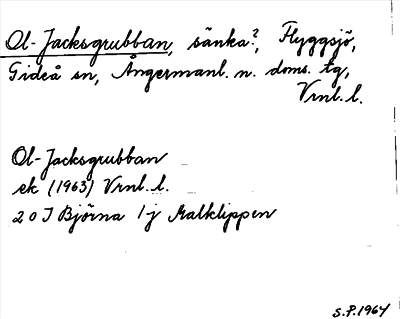 Ol-Jacksgrubban, sänka?, Flyggsjö,
Gideå sn, Ångermanl. n. doms. tg,
Vrnl. l.
Ol-Jacksgrubban
ek (1963) Vrnl. l.
20 J Björna 1j Malklippen
S.P. 1964